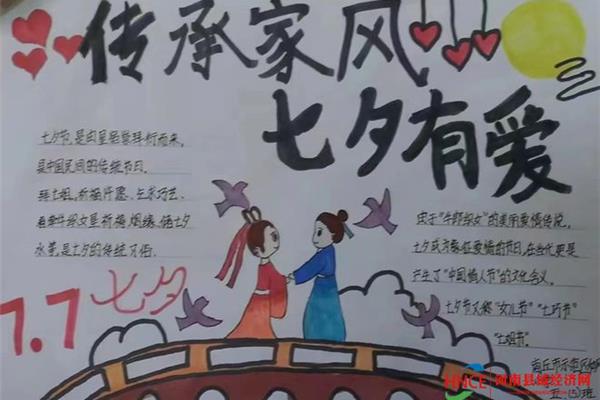 传承家风
七夕有爱
七夕节,是由星宿崇拜衍而来,
是中国民间的传统节日,
拜七姐,祈福许愿、乞求巧艺、
看牵牛织女星祈祷姻缘、储七夕
水等,是七夕的传统习俗。
由于“牛郎织女”的美丽爱情传说,
七夕成为象征爱情的节日,在当代更是
产生了“中国情人节”的文化含义。
七夕节又称“女儿节”“七巧节”
“七姐节”。
7.7 七夕
商丘市
HNCE 河南县域经济网
五、(5)班